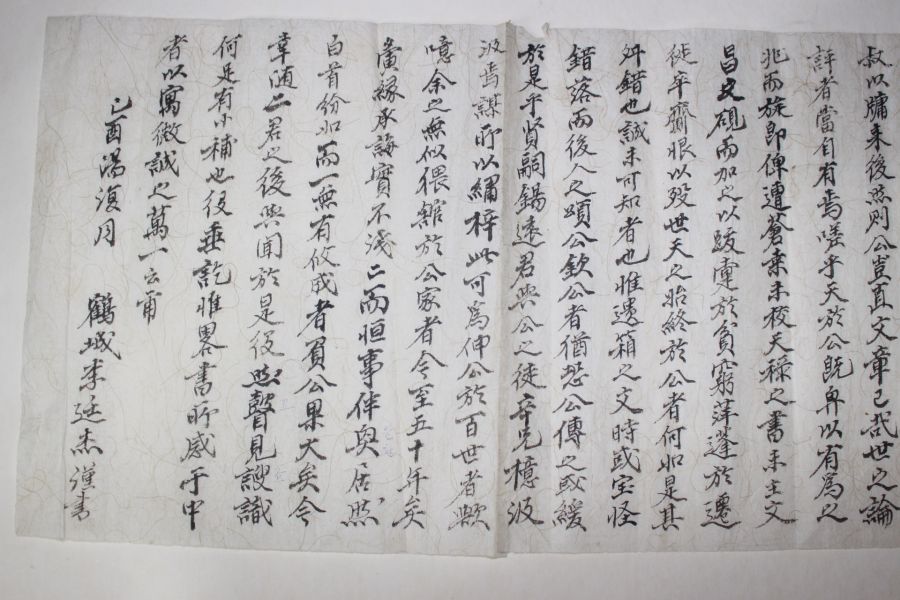 叔以牖来後然則公豈直文章已哉世之論
評者當自有焉嗟乎天於公旣畀以有爲之
兆而旋卽俾遭蒼桑未校天祿之書未主文
昌文硯而加之以跋疐於貧窮萍蓬於遷
徙卒齎恨以歿世天之始終於公者何如是其
舛錯也誠未可知者也惟遺箱之文時或宝怪
錯落而後人之頌公欽公者猶恐公傳之或緩
於是乎賢嗣錫遠君與公之徒辛兄檍汲
汲焉謀所以繡梓此可爲伸公於百世者歟
噫余之無似猥綰於公家者今至五十年矣
賓緣承誨實不淺二而恒事伴奥居然
白首份如而一無有攸成者負公果大矣今
幸随二君之後與聞於是役然瞽見謏識
何足有小補也役垂訖惟畧書所感于中
者以寓微誠之萬一云甭
己酉陽復月 鶴城李廷杰謹書